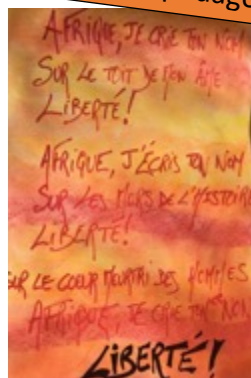 AFRIQUE, JE CRIE TON NOM
SUR LE TOIT DE MON ÂME
LIBERTÉ!
AFRIQUE, J'ÉCRIS TON NOM
SUR LES MURS DE L'HISTOIRE
LIBERTÉ!
SUR LE COEUR MEURTRI DES HOMMES
AFRIQUE, JE CRIE TON NOM
LIBERTÉ!